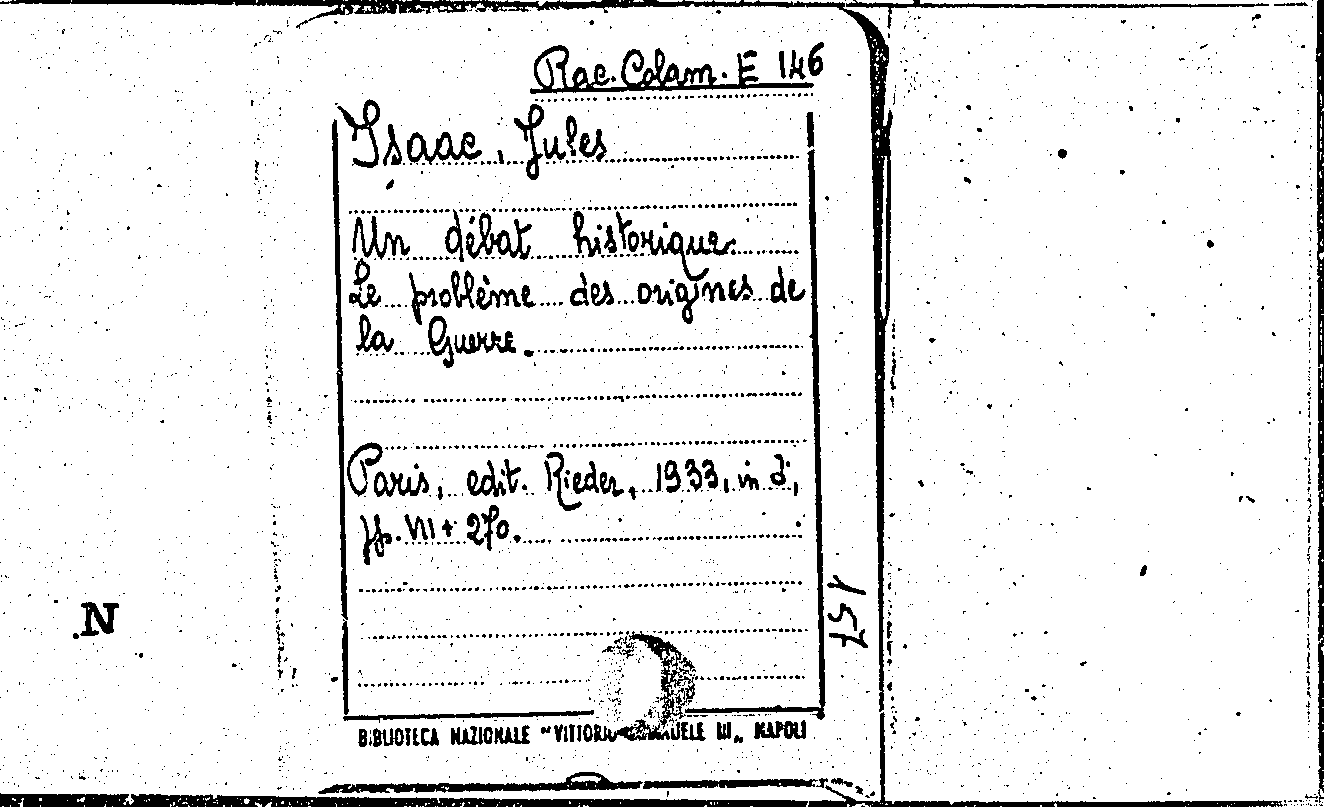 Rac. Colam. E 146
Isaac, Jules
Un débat historique.
Le problème des origines de
la Guerre.
Paris, edit. Rieder, 1933, in 8°,
pp. VII + 270.
157
N
BIBLIOTECA NAZIONALE "VITTORIO EMANUELE III" NAPOLI